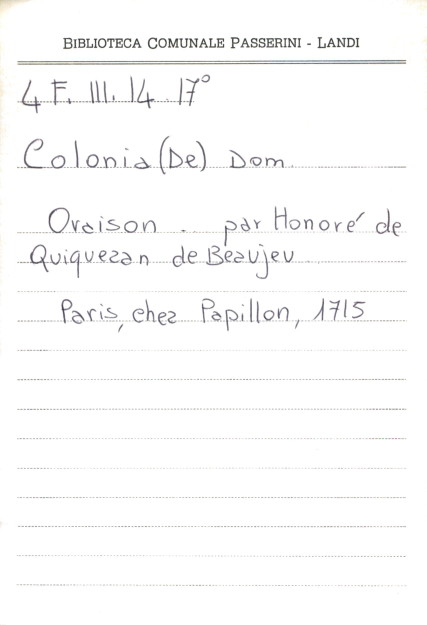 BIBLIOTECA COMUNALE PASSERINI - LANDI
4 F. III. 14 17°
Colonia (De) Dom
Oraison .. par Honoré de
Quiqueran de Beaujeu
Paris, chez Papillon, 1715